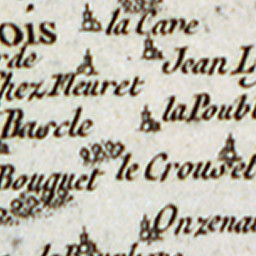 ois
la Cave
de
Jean L
hez Fleuret
la Poub
Bascle
le Crouset
Bouquet
Onzenau